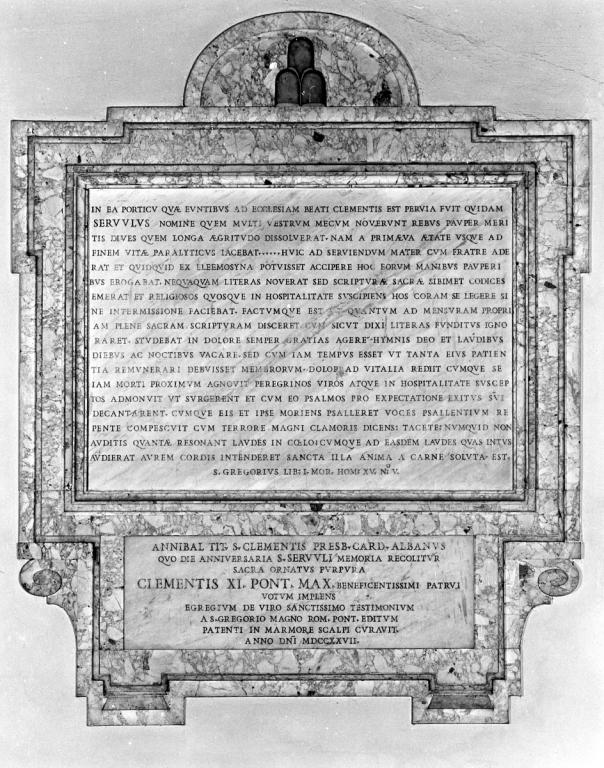 IN EA PORTICV QVÆ EVNTIBVS AD ECCLESIAM BEATI CLEMENTIS EST PERVIA FVIT QVIDAM
SERVVLVS NOMINE QVEM MVLTI VESTRVM MECVM NOVERVNT REBVS PAVPER MERI
TIS DIVES QVEM LONGA ÆGRITVDO DISSOLVERAT. NAM A PRIMÆVA ÆTATE VSQVE AD
FINEM VITÆ PARALYTICVS IACEBAT......HVIC AD SERVIENDVM MATER CVM FRATRE ADE
RAT ET QVIDQVID EX ELEEMOSYNA POTVISSET ACCIPERE HOC EORVM MANIBVS PAVPERI
BVS EROGABAT. NEQVAQVAM LITERAS NOVERAT SED SCRIPTVRÆ SACRÆ SIBIMET CODICES
EMERAT ET RELIGIOSOS QVOSQVE IN HOSPITALITATE SVSCIPIENS HOS CORAM SE LEGERE SI
NE INTERMISSIONE FACIEBAT. FACTVMQVE EST VT QVANTVM AD MENSVRAM PROPRI
AM PLENE SACRAM SCRIPTVRAM DISCERET. CVM SICVT DIXI LITERAS FVNDITVS IGNO
RARET. STVDEBAT IN DOLORE SEMPER GRATIAS AGERE HYMNIS DEO ET LAVDIBVS
DIEBVS AC NOCTIBVS VACARE. SED CVM IAM TEMPVS ESSET VT TANTA EIVS PATIEN
TIA REMVNERARI DEBVISSET MEMBRORVM DOLOR AD VITALIA REDIIT CVMQVE SE
IAM MORTI PROXIMVM AGNOVIT PEREGRINOS VIROS ATQVE IN HOSPITALITATE SVSCEP
TOS ADMONVIT VT SVRGERENT ET CVM EO PSALMOS PRO EXPECTATIONE EXITVS SVI
DECANTARENT. CVMQVE EIS ET IPSE MORIENS PSALLERET VOCES PSALLENTIVM RE
PENTE COMPESCVIT CVM TERRORE MAGNI CLAMORIS DICENS: TACETE: NVMQVID NON
AVDITIS QVANTÆ RESONANT LAVDES IN COELO: CVMQVE AD EASDEM LAVDES QVAS INTVS
AVDIERAT AVREM CORDIS INTENDERET SANCTA ILLA ANIMA A CARNE SOLVTA EST.
S. GREGORIVS LIB: I. MOR. HOMI XV. Nº V.
ANNIBAL TIT. S. CLEMENTIS PRESB. CARD. ALBANVS
QVO DIE ANNIVERSARIA S. SERVVLI MEMORIA RECOLITVR
SACRA ORNATVS PVRPVRA
CLEMENTIS XI. PONT. MAX. BENEFICENTISSIMI PATRVI
VOTVM IMPLENS
EGREGIVM DE VIRO SANCTISSIMO TESTIMONIVM
A S. GREGORIO MAGNO ROM. PONT. EDITVM
PATENTI IN MARMORE SCALPI CVRAVIT.
ANNO DNI MDCCXXVII.